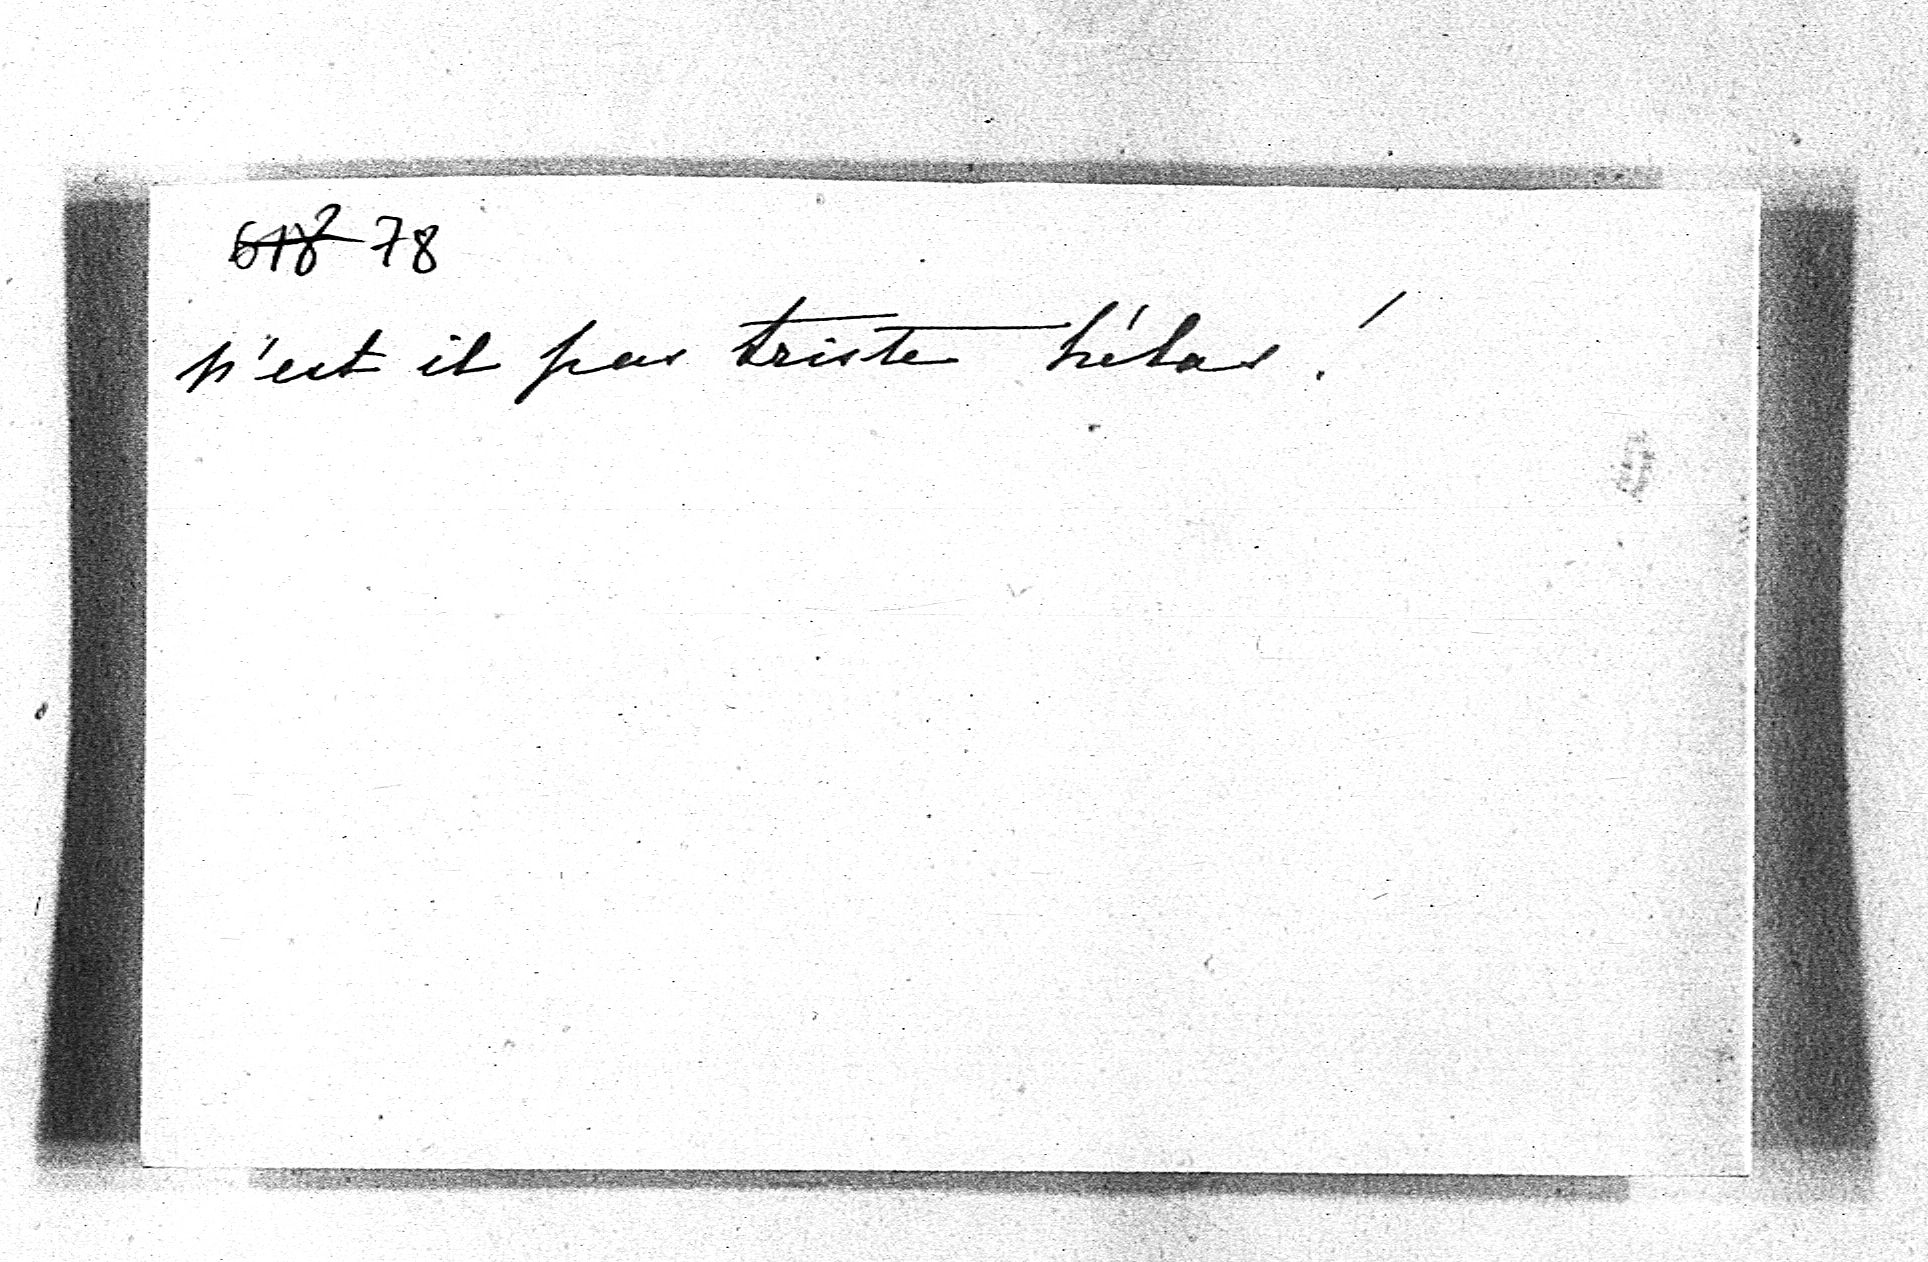 78
n'est il pas triste hélas !